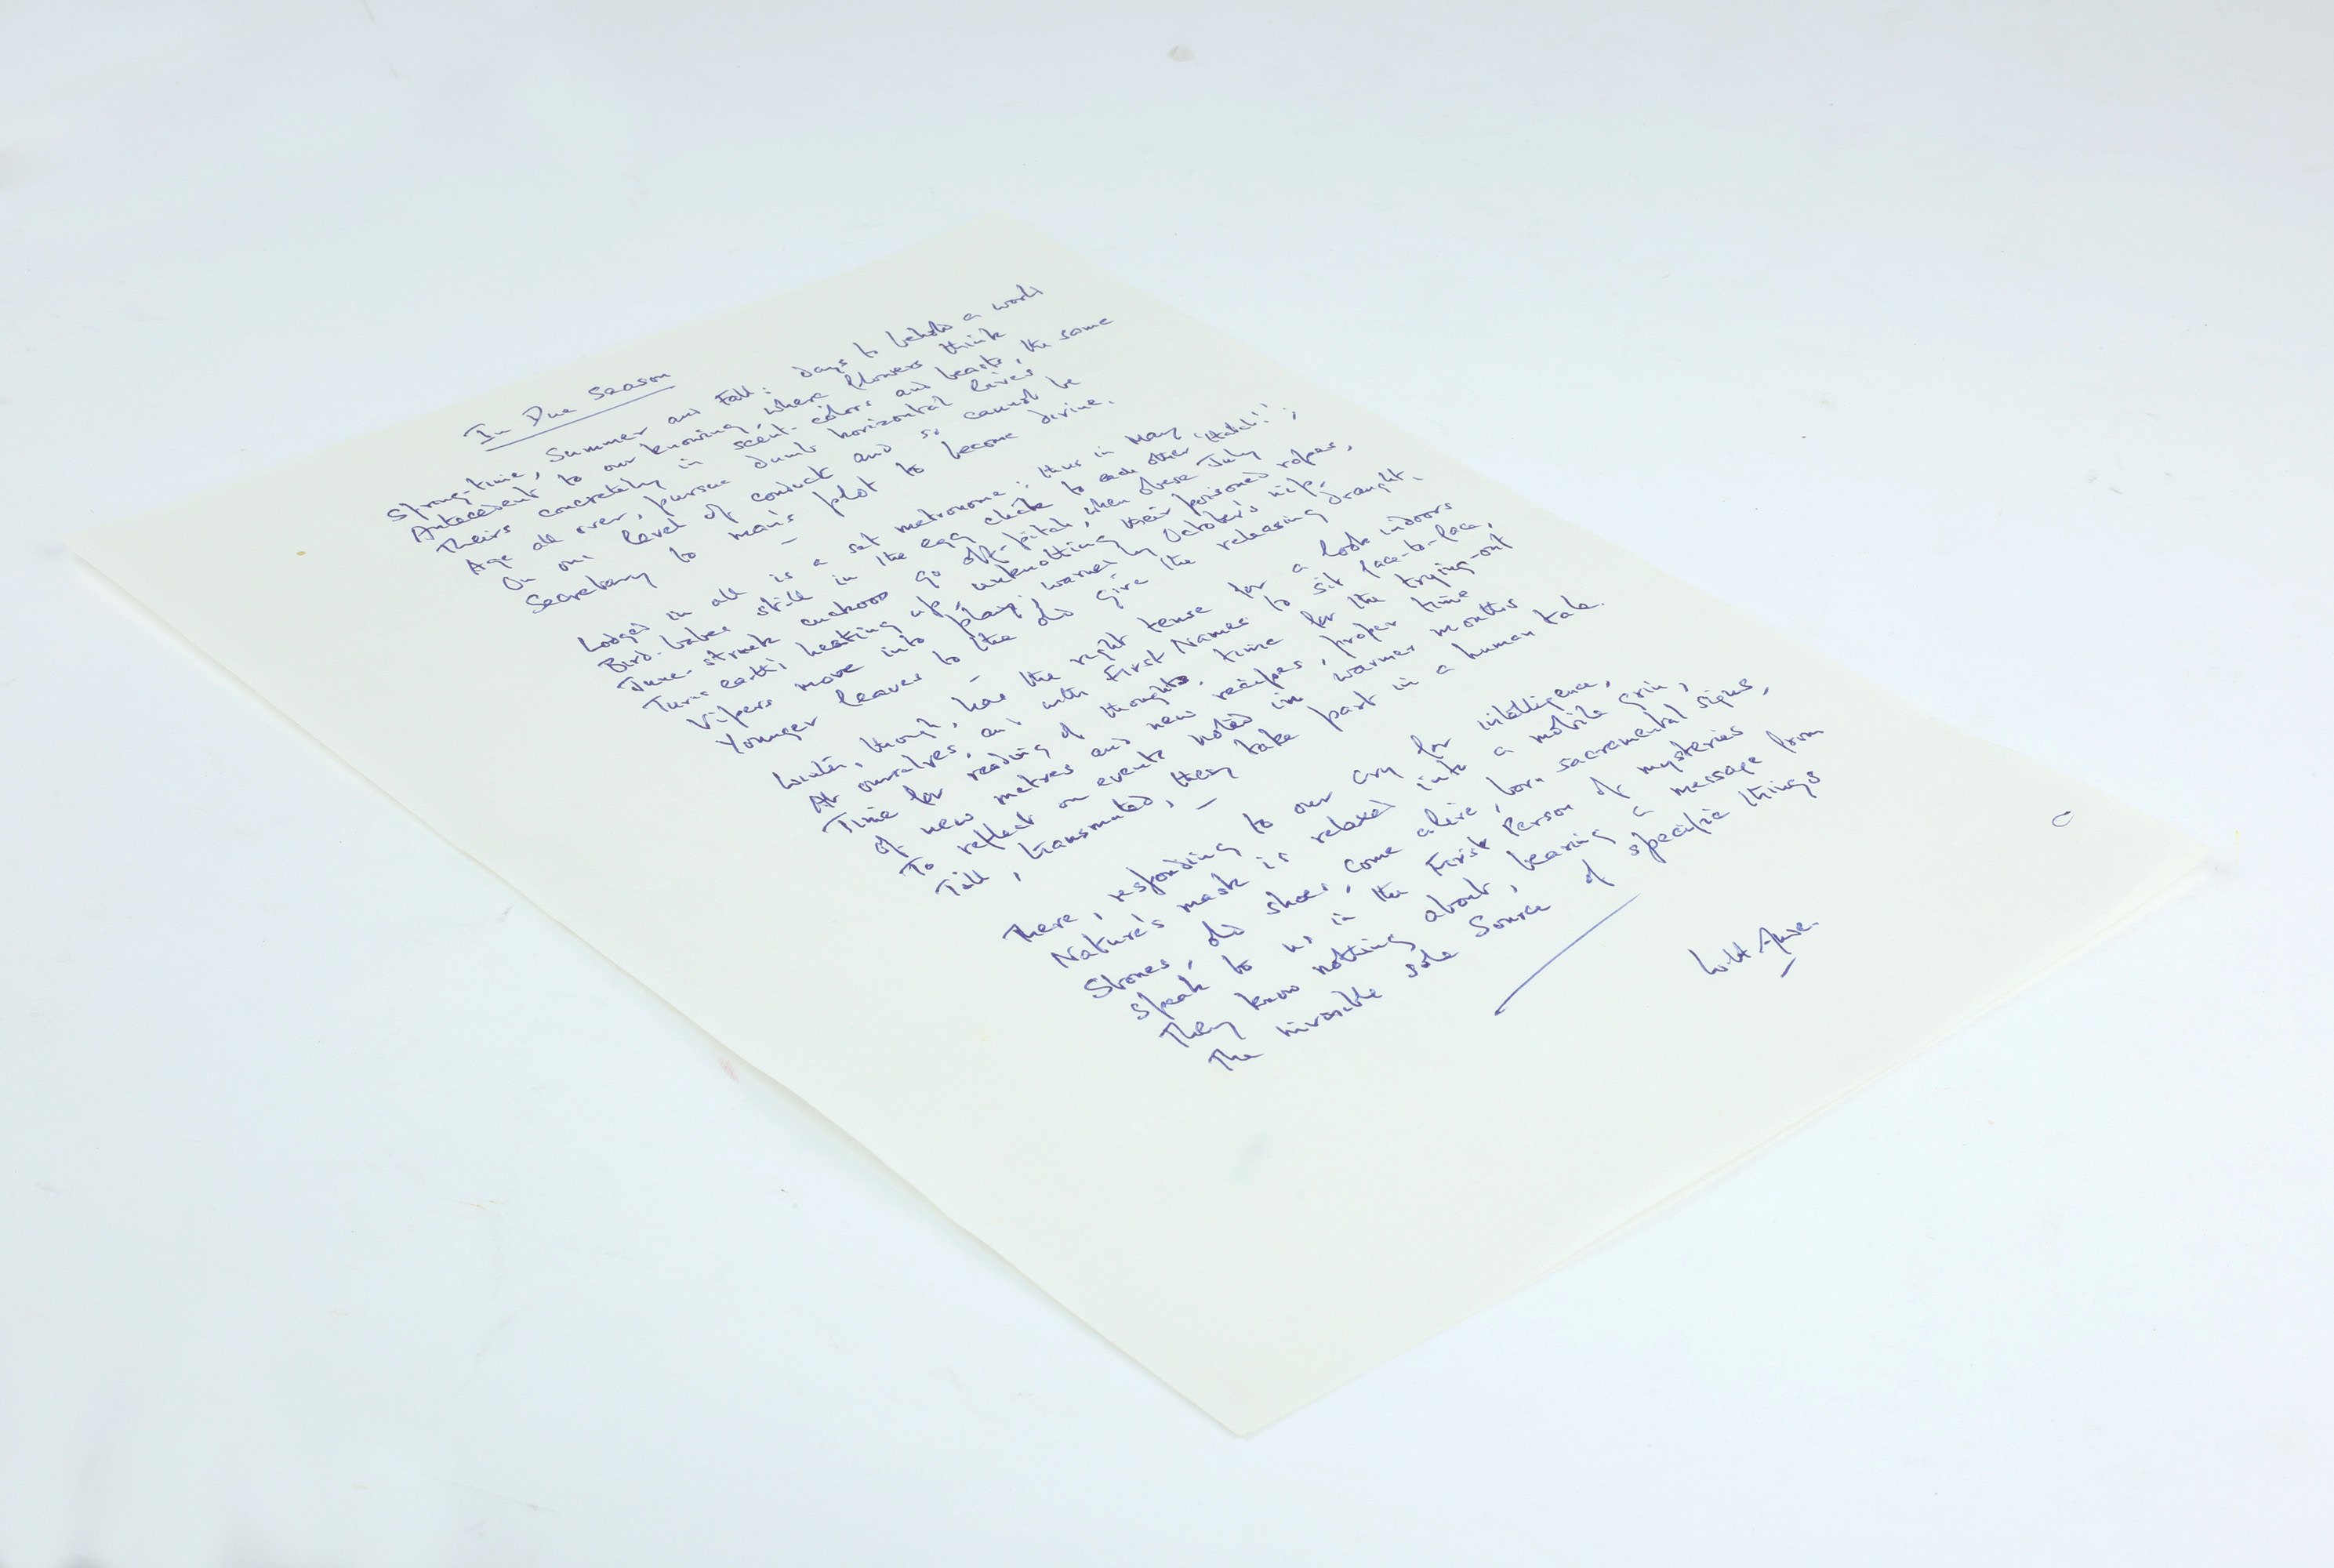 In Due Season
Spring-time, Summer and Fall: days to behold a world
Antecedent to our knowing, where flowers think
Theirs concretely in scent-colors and beasts, the same
Age all over, pursue dumb horizontal lives
On one level of conduct and so cannot be
Secretary to man's plot to become divine.
Lodged in all is a set metronome: thus in May
Bird-babes still in the egg click to each other "Hatch!";
June-struck cuckoos go off-pitch, when obese July
Turns earth's heating up, unknotting their poisoned ropes,
Vipers move into play; warned by October's nip,
Younger leaves to the old give the releasing draught.
Winter, though, has the right tense for a look indoors
At ourselves, and with First Names to sit face-to-face,
Time for reading of thoughts, time for the trying-out
Of new metres and new recipes, proper time
To reflect on events noted in warmer months
Till, transmuted, they take part in a human tale.
There, responding to our cry for intelligence,
Nature's mask is relaxed into a mobile grin,
Stones, old shoes, come alive, born sacramental signs,
Speak to us in the First Person of mysteries
They know nothing about, bearing a message from
The invisible sole Source of specific things